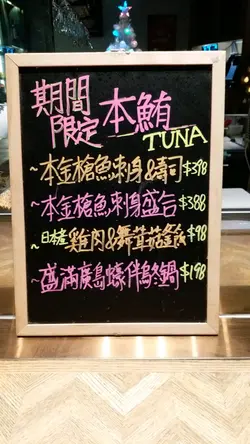 期間
限定
本鮪
TUNA
~本金槍魚刺身&壽司$398
~本金槍魚刺身盛合$388
~日本産雞肉&舞茸菇飯$98
~盛滿廣島蠔伴烏冬鍋$198